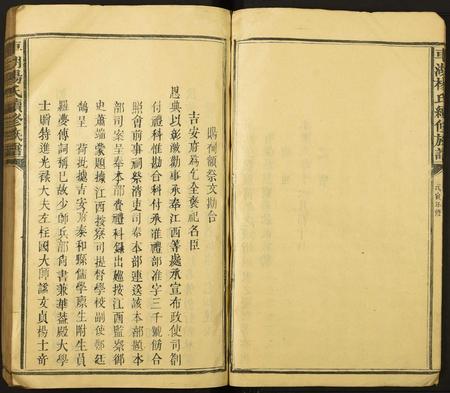 車湖楊氏續修族譜
戊寅年修
賜祠額祭文勘合
吉安府爲乞全褒祀名臣
恩典以彰激勸事承奉江西等處承宣布政使司劄
付禮科惟勘合科付承准禮部准字三千號勘合
照會前事祠祭淸吏司奉本部連送該本部題本
部司案呈奉本部費禮科錄出廵按江西監察御
史蕭端蒙題據江西按察司提督學校副使鄭廷
鵠呈 荷批據吉安府泰和縣儒學廩生附生員
羅憂傳詞稱已故少師兵部尙書兼華葢殿大學
士贈特進光祿大夫左柱國大師謚文貞楊士奇
車湖楊氏續修族譜